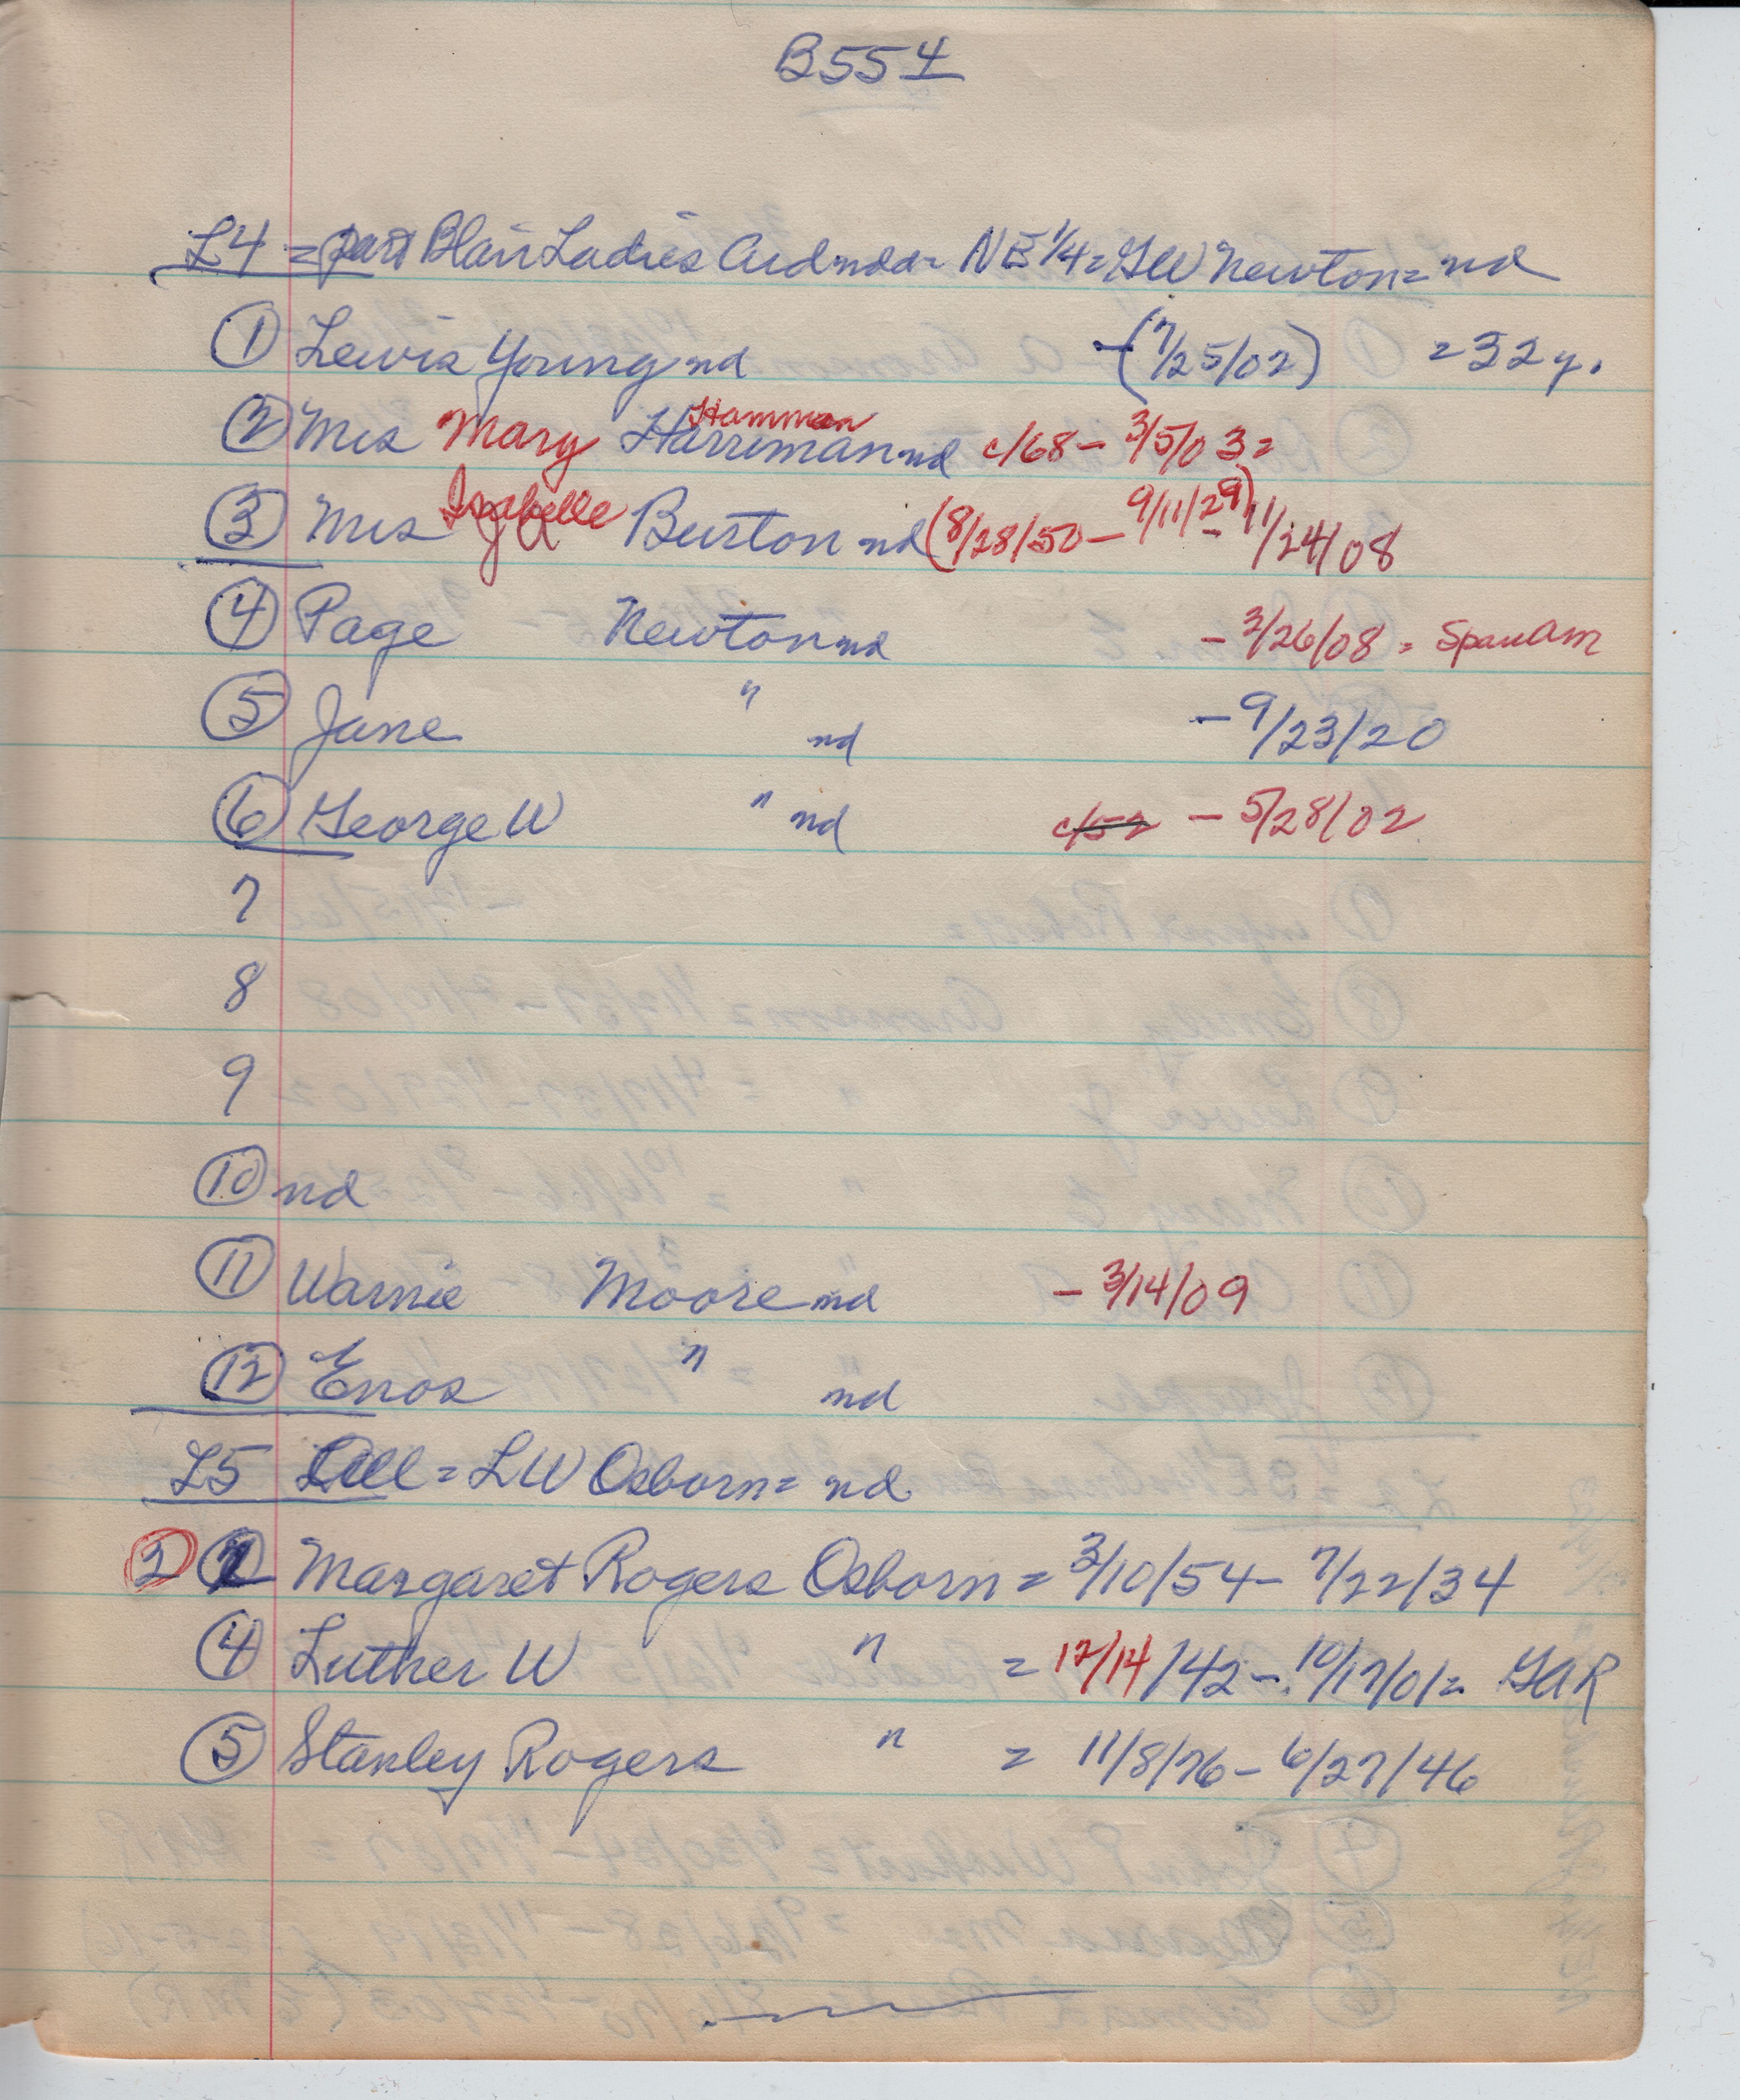 B554
L4 = part Blair Ladies Aid nda = NE 1/4 = GW Newton = nd
1 Lewis Young nd - (7/25/02) = 32 y.
Hamman
2 Mrs Mary Harriman nd c/68 - 3/5/03 =
Isabelle
3 Mrs JA Burton nd (8/28/50 - 9/11/29) - 11/24/08
4 Page Newton nd - 3/26/08 = Span Am
5 Jane " nd - 9/23/20
6 George W " nd c/52 - 5/28/02
7
8
9
10 nd
11 Warnie Moore nd - 3/14/09
12 Enos " nd
L5 All = LW Osborn = nd
3 Margaret Rogers Osborn = 3/10/54 - 7/22/34
4 Luther W " = 12/14/42 - 10/17/01 = GAR
5 Stanley Rogers " = 11/8/76 - 6/27/46